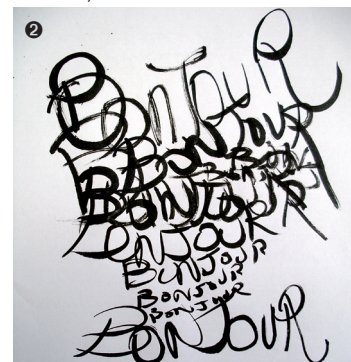 ❷
BONJOUR
BONJOUR
BONJOUR
BONJOUR
BONJOUR
BONJOUR
BONJOUR
BONJOUR